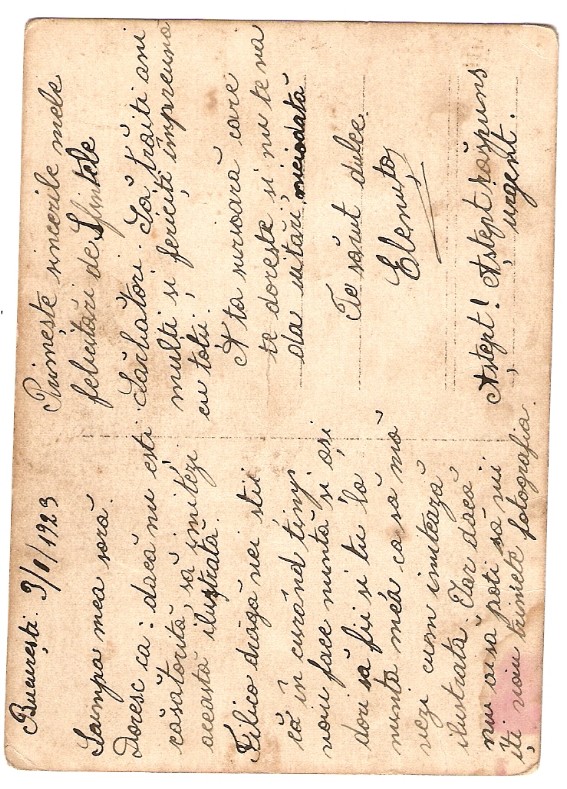 București. 3/I/1923
Scumpa mea soră
Doresc ca: dacă nu ești
căsătorită, să imitezi
această ilustrată.
Filico dragă vei știi
că în curând timp
voiu face nuntă și ași
dori să fii și tu la
nunta mea ca să mă
vezi cum imitează
ilustrata. Iar dacă
nu ai să poți să vii
îți voiu trimete fotografia.
Primește sincerile mele
felicitări de Sfintele
Sărbători. Să trăiți ani
mulți și fericiți împreună
cu toții,
A ta surioară care
te dorește și nu te va
da uitări, niciodată
Te sărut dulce.
Elenuța
Aștept! Aștept răspuns
urgent.